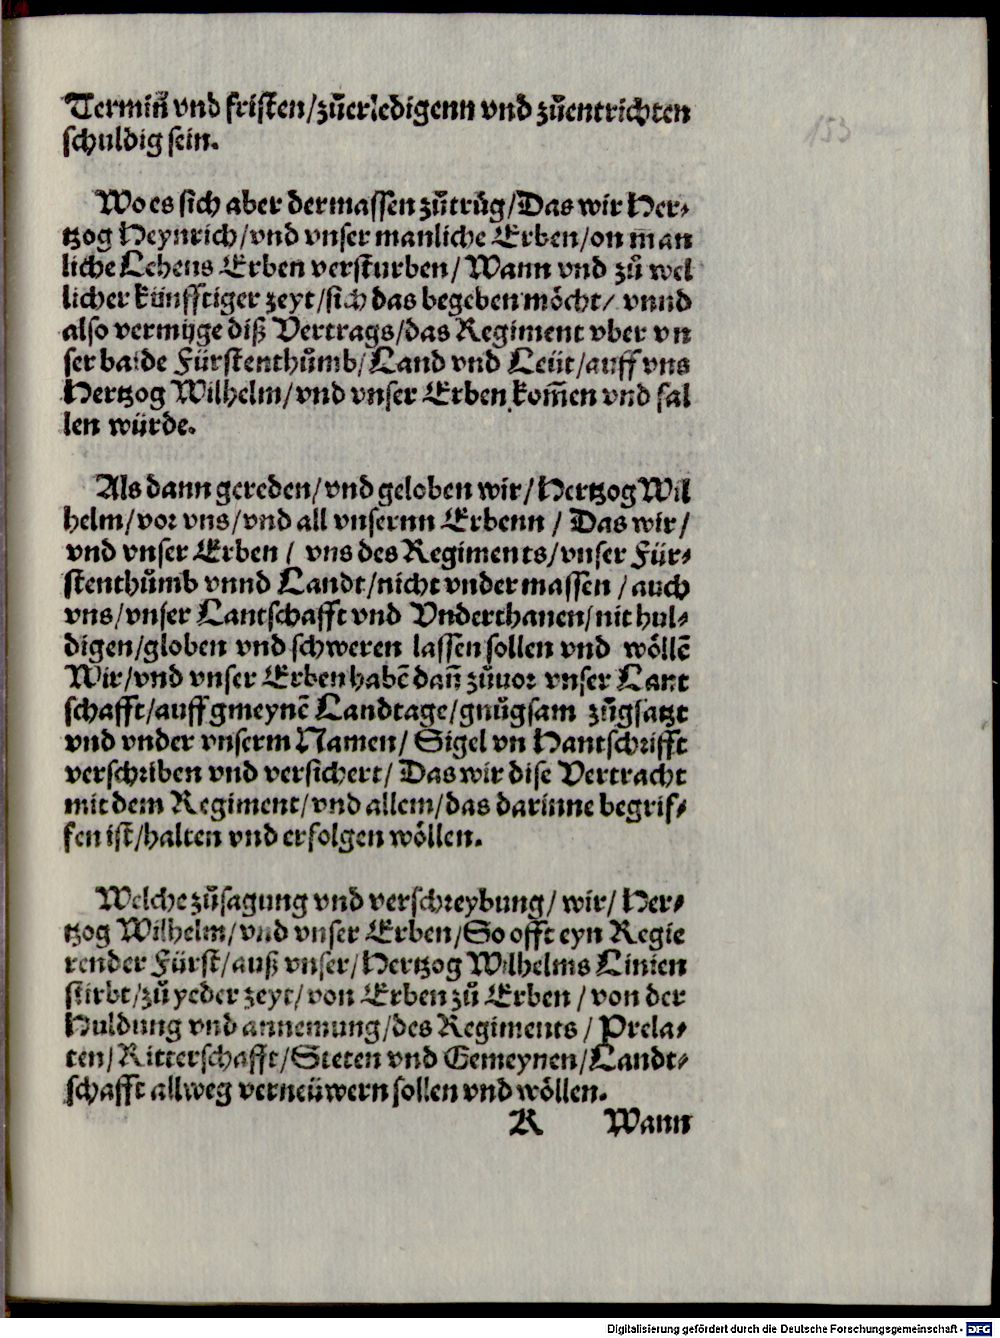 Termiñ vnd fristen/zůerledigenn vnd zůentrichten
schuldig sein.
Wo es sich aber dermassen zůtrůg/Das wir Her⸗
tzog Heynrich/vnd vnser manliche Erben/on man
liche Lehens Erben versturben/Wann vnd zů wel
licher künfftiger zeyt/sich das begeben möcht/ vnnd
also vermüge diß Vertrags/das Regiment vber vn
ser baide Fürstenthůmb/Land vnd Leüt/auff vns
Hertzog Wilhelm/vnd vnser Erben kom̄en vnd fal
len würde.
Als dann gereden/vnd geloben wir/Hertzog Wil
helm/vor vns/vnd all vnsernn Erbenn / Das wir/
vnd vnser Erben / vns des Regiments/vnser Für⸗
stenthůmb vnnd Landt/nicht vndermassen /auch
vns/vnser Lantschafft vnd Vnderthanen/nit hul⸗
digen/globen vnd schweren lassen sollen vnd wöllē
Wir/vnd vnser Erben habē dañ zůuor vnser Lant
schafft/auff gmeynē Landtage/gnůgsam zůgsatzt
vnd vnder vnserm Namen/ Sigel vn Hantschrifft
verschriben vnd versichert/ Das wir dise Vertracht
mit dem Regiment/vnd allem/das darinne begrif⸗
fen ist/halten vnd erfolgen wöllen.
Welche zůsagung vnd verschreybung/ wir/ Her⸗
tzog Wilhelm/vnd vnser Erben/So offt eyn Regie
render Fürst/auß vnser/Hertzog Wilhelms Linien
stirbt/zů yeder zeyt/von Erben zů Erben / von der
Huldung vnd annemung/des Regiments / Prela⸗
ten/Ritterschafft/Steten vnd Gemeynen/Landt⸗
schafft allweg verneüwern sollen vnd wöllen.
K Wann
153
Digitalisierung gefördert durch die Deutsche Forschungsgemeinschaft - DFG